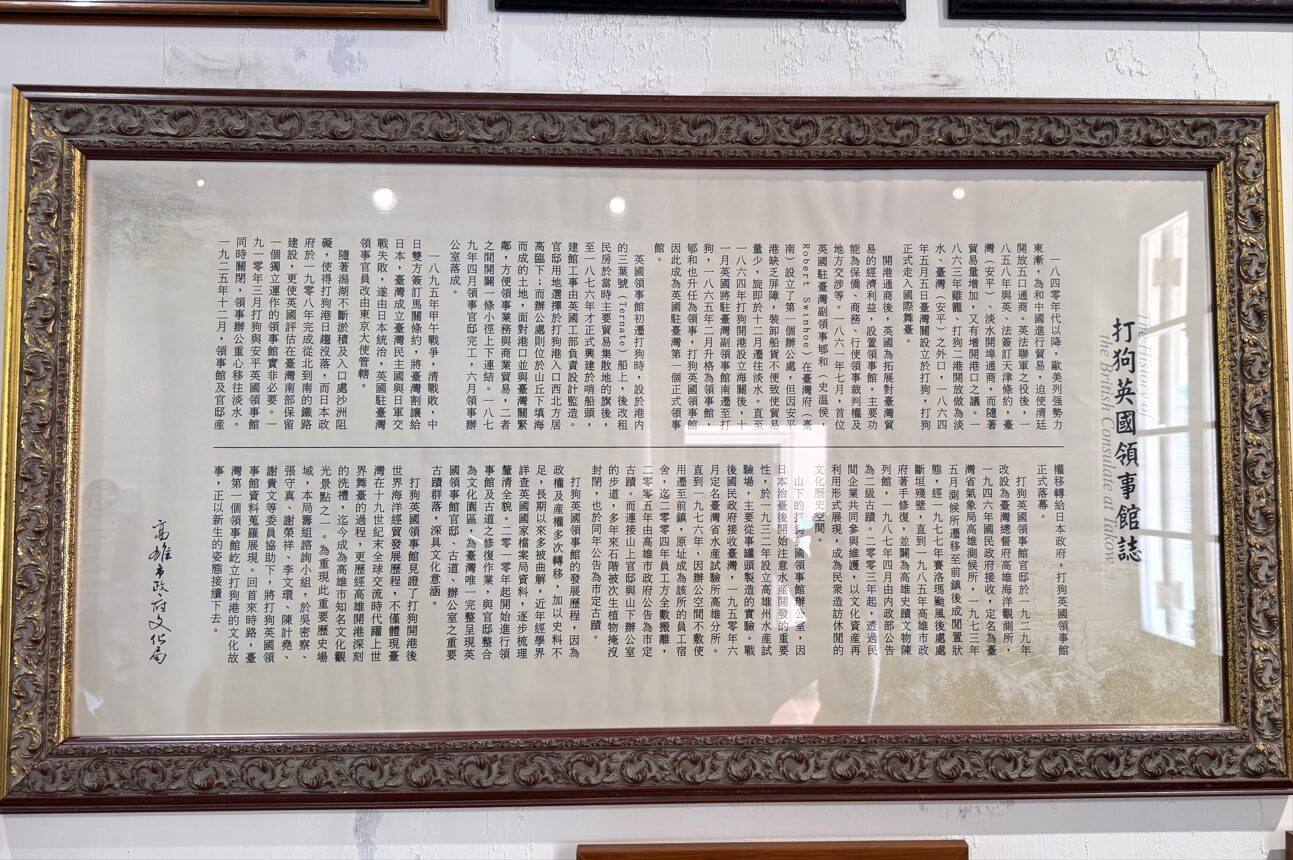 打狗英國領事館誌
The History of
the British Consulate at Takow
一八四零年代以降，歐美列强勢力
東漸，為和中國進行貿易，迫使清廷
開放五口通商。英法聯軍之役後，一
八五八年與英、法簽訂天津條約，臺
灣（安平）、淡水開埠通商，而隨著
貿易量增加，又有增開港口之議。一
八六三年雞籠、打狗二港開放做為淡
水、臺灣（安平）之外口，一八六四
年五月五日臺灣關設立於打狗，打狗
正式走入國際舞臺。
開港通商後，英國為拓展對臺灣貿
易的經濟利益，設置領事館，主要功
能為保僑、商務、行使領事裁判權及
地方交涉等。一八六一年七月，首位
英國駐臺灣副領事郇和（史温侯，
Robert Swinhoe）在臺灣府（臺
南）設立了第一個辦公處，但因安平
港缺乏屏障，裝卸船貨不便致使貿易
量少，旋即於十二月遷往淡水。直至
一八六四年打狗開港設立海關後，十
一月英國將駐臺灣副領事館南遷至打
狗，一八六五年二月升格為領事館，
郇和也升任為領事，打狗英國領事館
因此成為英國駐臺灣第一個正式領事
館。
英國領事館初遷打狗時，設於港內
的三葉號（Ternate）船上，後改租
民房於當時主要貿易集散地的旗後，
至一八七六年才正式興建於哨船頭，
建館工事由英國工部負責設計監造。
官邸用地選擇於打狗港入口西北方居
高臨下；而辦公處則位於山丘下填海
而成的土地，面對港口並與臺灣關緊
鄰，方便領事業務與商業貿易，二者
之間開闢一條小徑上下連結。一八七
九年四月領事官邸完工，六月領事辦
公室落成。
一八九五年甲午戰爭，清戰敗，中
日雙方簽訂馬關條約，將臺灣割讓給
日本，臺灣成立臺灣民主國與日軍交
戰失敗，遂由日本統治，英國駐臺灣
領事官員改由東京大使管轄。
隨著潟湖不斷淤積及入口處沙洲阻
礙，使得打狗港日趨沒落，而日本政
府於一九零八年完成從北到南的鐵路
建設，更使英國評估在臺灣南部保留
一個獨立運作的領事館實非必要。一
九一零年三月打狗與安平英國領事館
同時關閉，領事辦公重心移往淡水。
一九二五年十二月，領事館及官邸產
權移轉給日本政府，打狗英國領事館
正式落幕。
打狗英國領事館官邸於一九二九年
改設為臺灣總督府高雄海洋觀測所，
一九四六年國民政府接收，定名為臺
灣省氣象局高雄測候所，一九七三年
五月測候所遷移至前鎮後成閒置狀
態，經一九七七年賽洛瑪颱風後處處
斷垣殘壁，直到一九八五年高雄市政
府著手修復，並闢為高雄史蹟文物陳
列館，一九八七年四月由內政部公告
為二級古蹟。二零零三年起，透過民
間企業共同參與維護，以文化資產再
利用形式展現，成為民衆造訪休閒的
文化歷史空間。
山下的打狗英國領事館辦公室，因
日本治臺後開始注意水産開發的重要
性，於一九三一年設立高雄州水産試
驗場，主要從事罐頭製造的實驗。戰
後國民政府接收臺灣，一九五零年六
月定名臺灣省水産試驗所高雄分所。
直到一九七六年，因辦公空間不敷使
用遷至前鎮，原址成為該所的員工宿
舍，迄二零零四年員工方全數搬離，
二零零五年由高雄市政府公告為市定
古蹟。而連接山上官邸與山下辦公室
的步道，多年來石階被次生植物掩沒
封閉，也於同年公告為市定古蹟。
打狗英國領事館的發展歷程，因為
政權及産權多次轉移，加以史料不
足，長期以來多被曲解，近年經學界
詳查英國國家檔案局資料，逐步梳理
釐清全貌。二零一零年起開始進行領
事館及古道之修復作業，與官邸整合
為文化園區，為臺灣唯一完整呈現英
國領事館官邸、古道、辦公室之重要
古蹟群落，深具文化意涵。
打狗英國領事館見證了打狗開港後
世界海洋經貿發展歷程，不僅體現臺
灣在十九世紀末全球交流時代躍上世
界舞臺的過程，更歷經高雄開港深刻
的洗禮，迄今成為高雄市知名文化觀
光景點之一。為重現此重要歷史場
域，本局籌組諮詢小組，於吳密察、
張守真、謝榮祥、李文環、陳計堯、
謝貴文等委員協助下，將打狗英國領
事館資料蒐羅展現。回首來時路，臺
灣第一個領事館屹立打狗港的文化故
事，正以新生的姿態接續下去。
高雄市政府文化局